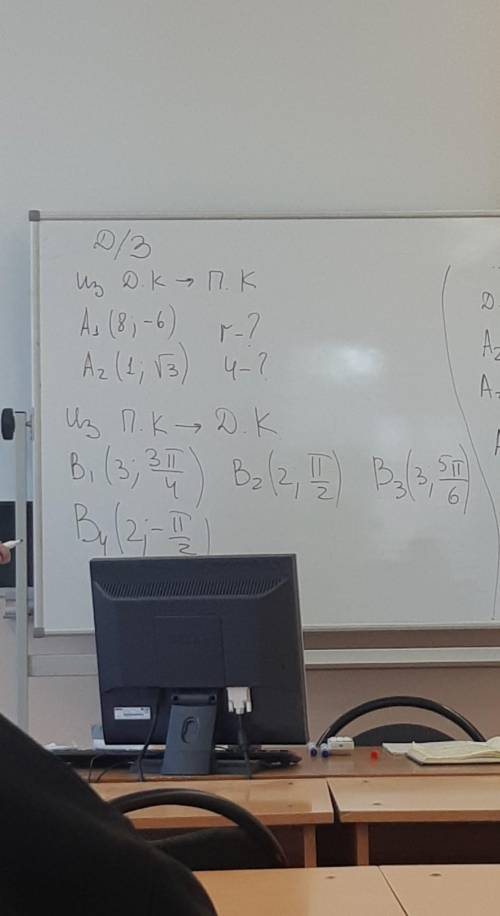 Д/З
Из Д.К → П.К
A₁(8; -6) r-?
A₂(1; √3) φ-?
Из П.К → Д.К.
B₁(3; 3π/4) B₂(2; π/2) B₃(3; 5π/6)
B₄(2; -π/2)